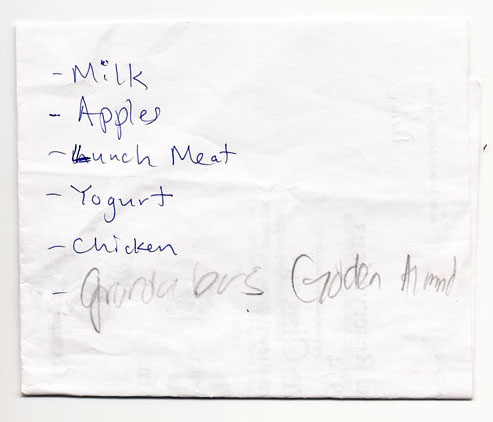 - Milk
- Apples
- Lunch Meat
- Yogurt
- Chicken
- Granola bars Golden Almond